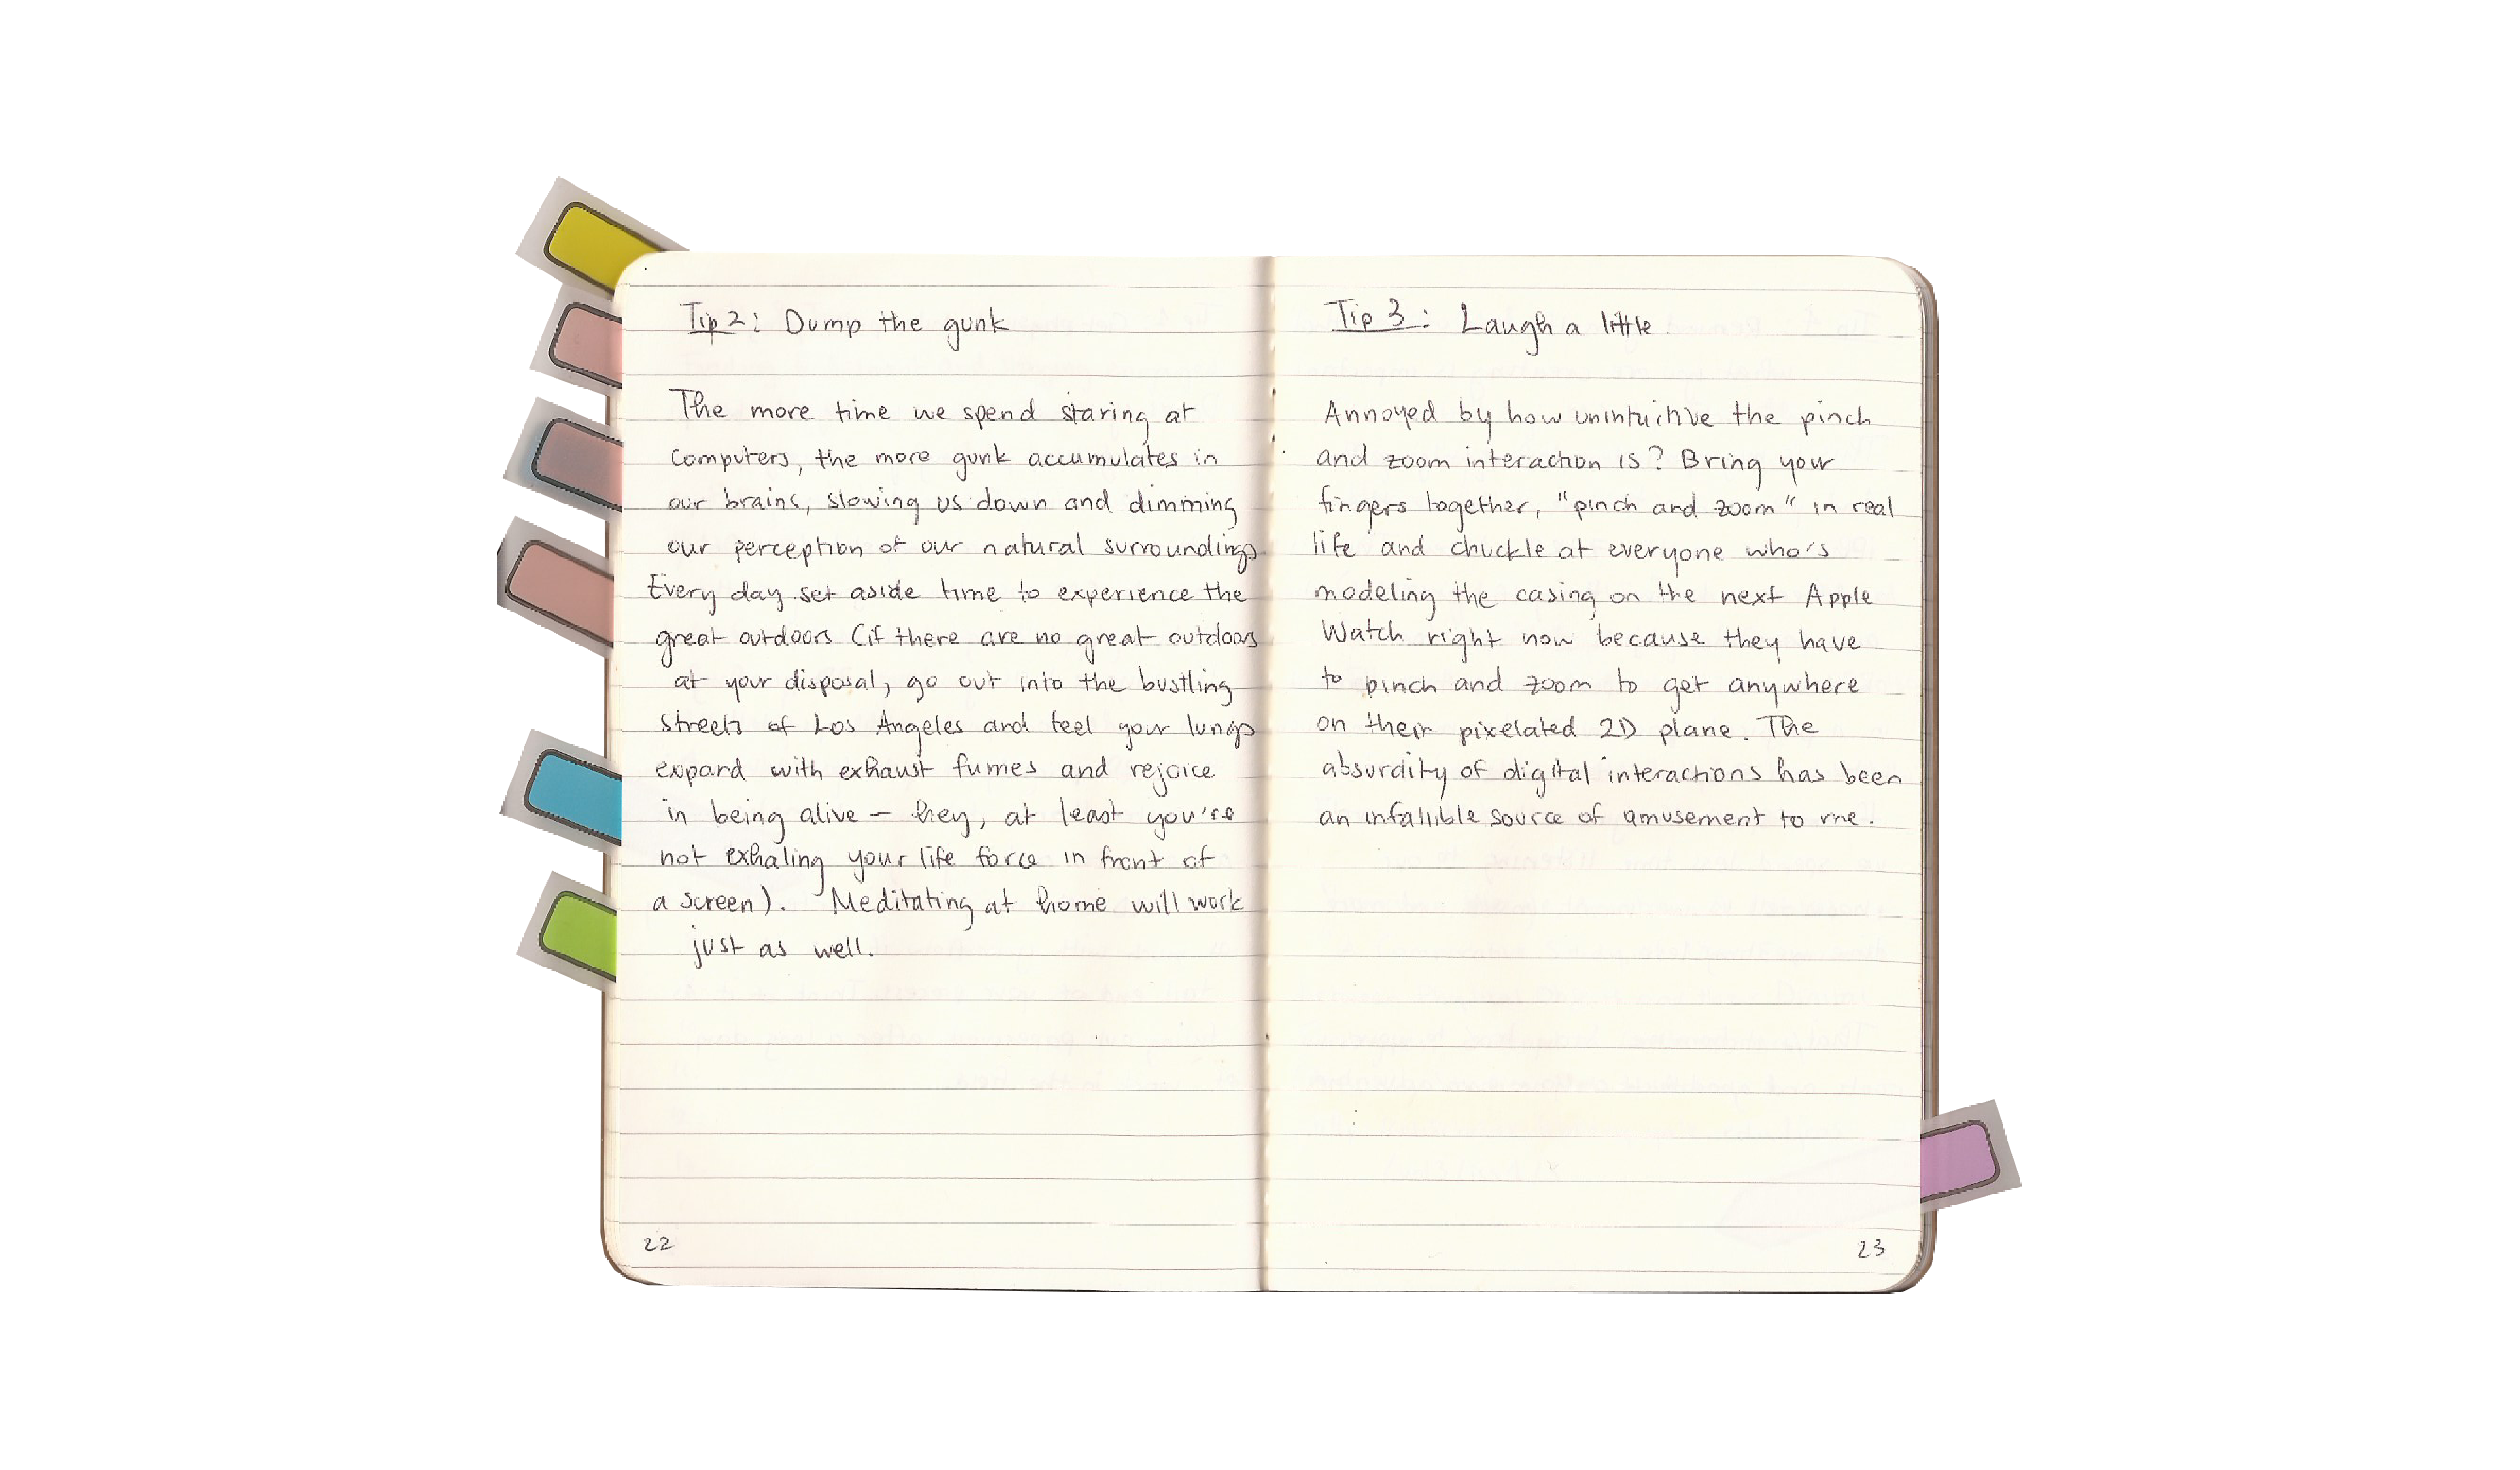 Tip 2: Dump the gunk
The more time we spend staring at
computers, the more gunk accumulates in
our brains, slowing us down and dimming
our perception of our natural surroundings.
Every day set aside time to experience the
great outdoors (if there are no great outdoors
at your disposal, go out into the bustling
streets of Los Angeles and feel your lungs
expand with exhaust fumes and rejoice
in being alive — hey, at least you're
not exhaling your life force in front of
a screen). Meditating at home will work
just as well.
22
Tip 3: Laugh a little.
Annoyed by how unintuitive the pinch
and zoom interaction is? Bring your
fingers together, "pinch and zoom" in real
life and chuckle at everyone who's
modeling the casing on the next Apple
Watch right now because they have
to pinch and zoom to get anywhere
on their pixelated 2D plane. The
absurdity of digital interactions has been
an infallible source of amusement to me.
23